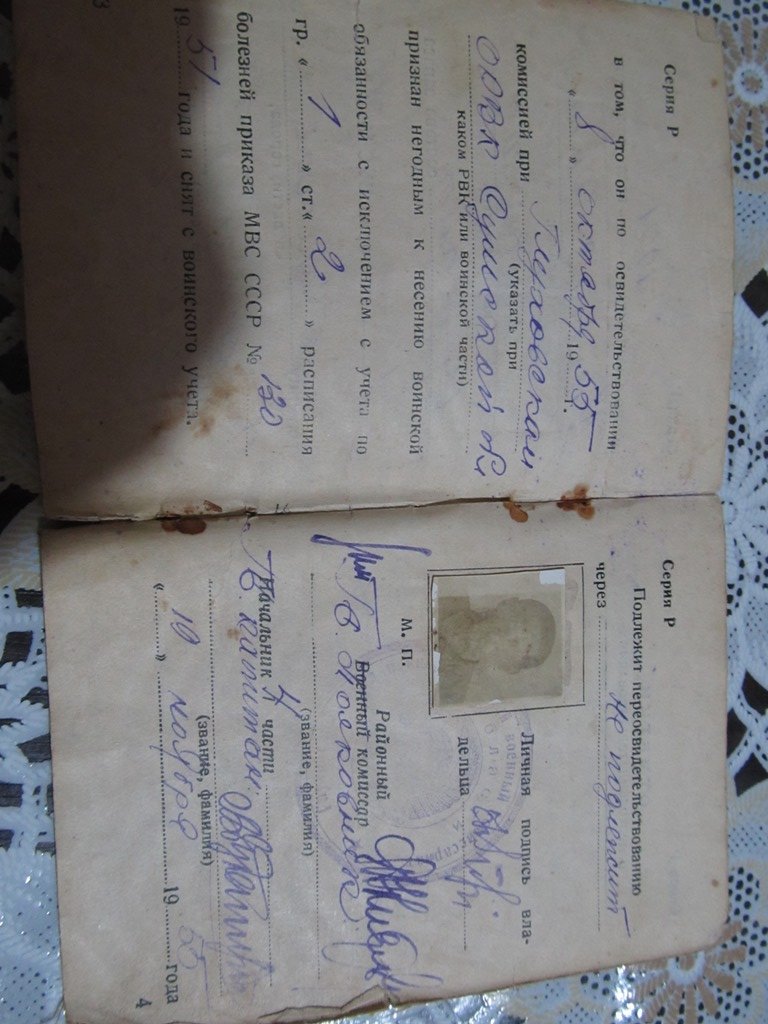 Серия Р
в том, что он по освидетельствовании
« 8 » октября 1955 г.
комиссией при Глуховском
(указать при
ОРВК Сумской обл
каком РВК или воинской части)
признан негодным к несению воинской
обязанности с исключением с учета по
гр. « 1 » ст. « 2 » расписания
болезней приказа МВС СССР № 130
1951 года и снят с воинского учета.
3
Серия Р
Подлежит переосвидетельствованию
через не подлежит
Личная подпись вла-
дельца
М. П.
Районный
Военный комиссар
п/полковник
(звание, фамилия)
Начальник 4 части
капитан
(звание, фамилия)
« 10 » ноября 1955 года
4